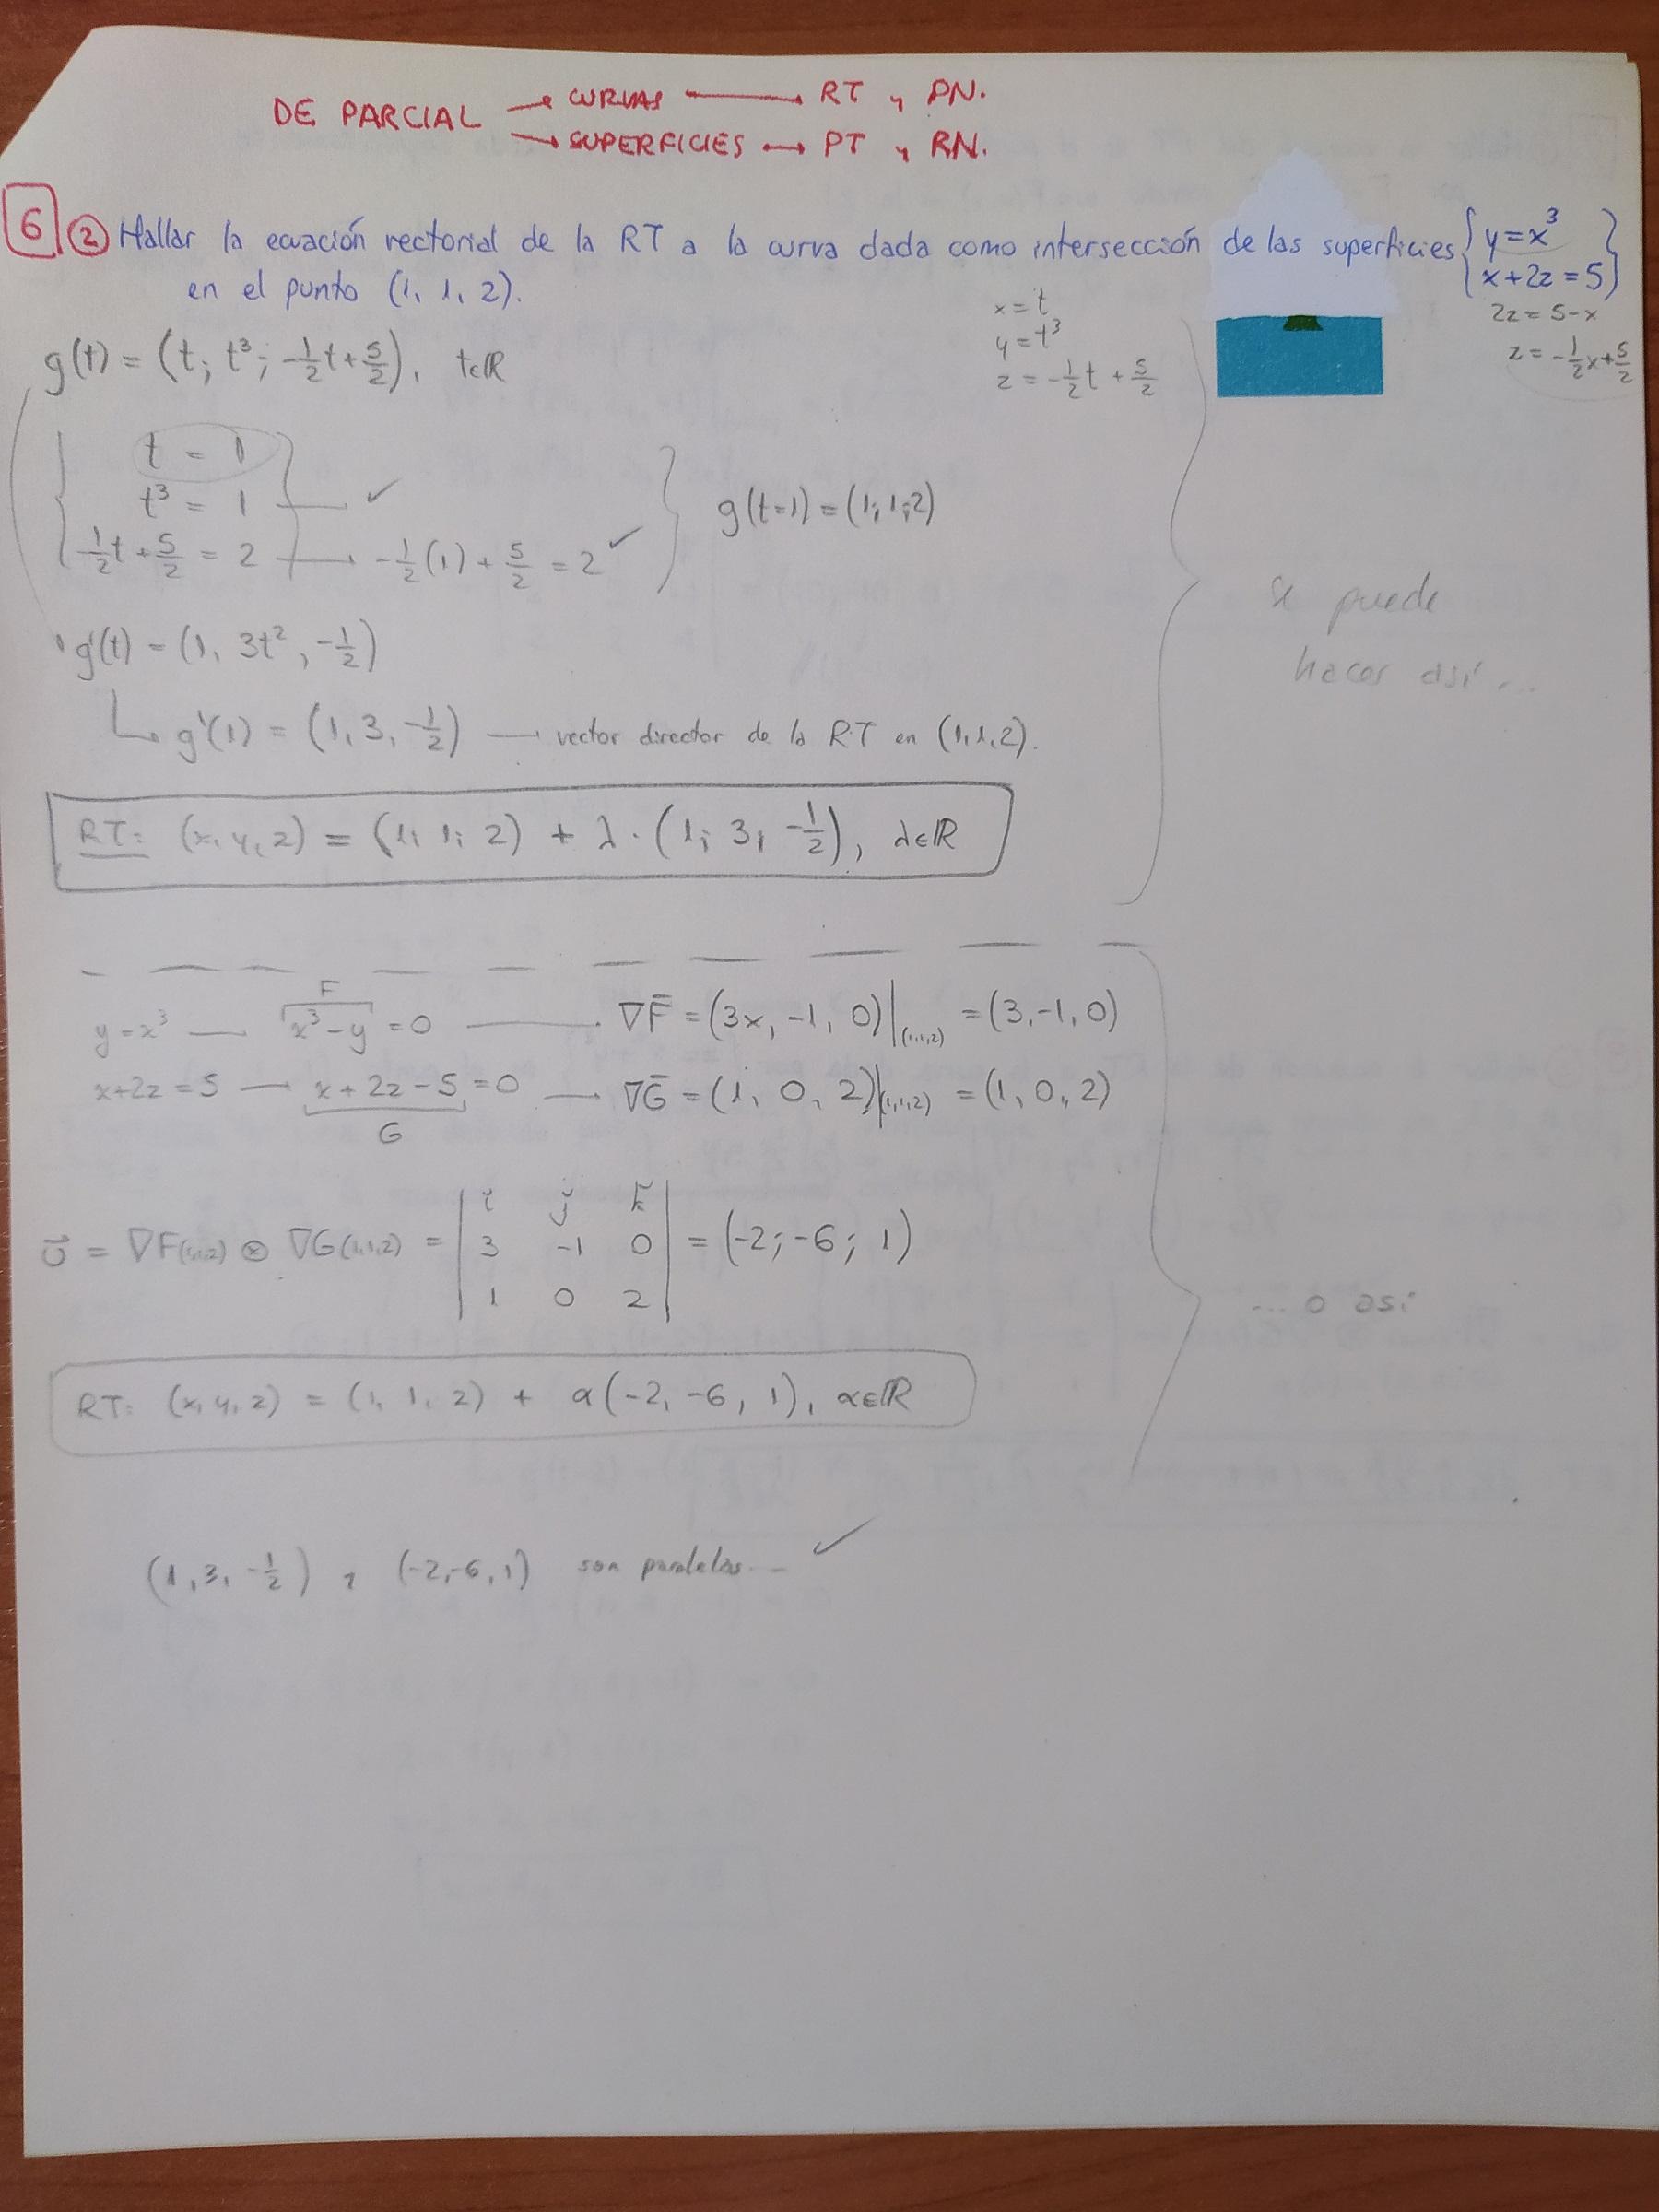 DE PARCIAL → CURVAS → RT y PN.
→ SUPERFICIES → PT y RN.
6 ② Hallar la ecuación vectorial de la RT a la curva dada como intersección de las superficies { y = x³
x + 2z = 5 }
en el punto (1, 1, 2).
2z = 5 - x
z = -1/2 x + 5/2
x = t
y = t³
z = -1/2 t + 5/2
g(t) = (t; t³; -1/2 t + 5/2), t∈ℝ
t = 1
t³ = 1 ✓
-1/2 t + 5/2 = 2 → -1/2 (1) + 5/2 = 2 ✓
g(t=1) = (1; 1; 2)
se puede
hacer así...
g'(t) = (1, 3t², -1/2)
↳ g'(1) = (1, 3, -1/2) → vector director de la RT en (1,1,2).
RT: (x, y, z) = (1; 1; 2) + λ · (1; 3; -1/2), λ∈ℝ
y = x³ — F x³ - y = 0 → ∇F̄ = (3x, -1, 0)|(1,1,2) = (3, -1, 0)
x + 2z = 5 — x + 2z - 5 = 0 G → ∇Ḡ = (1, 0, 2)|(1,1,2) = (1, 0, 2)
v̄ = ∇F(1,1,2) ⊗ ∇G(1,1,2) = | i j k
3 -1 0
1 0 2 | = (-2; -6; 1)
... o así
RT: (x, y, z) = (1, 1, 2) + α(-2, -6, 1), α∈ℝ
(1, 3, -1/2) y (-2, -6, 1) son paralelos... ✓